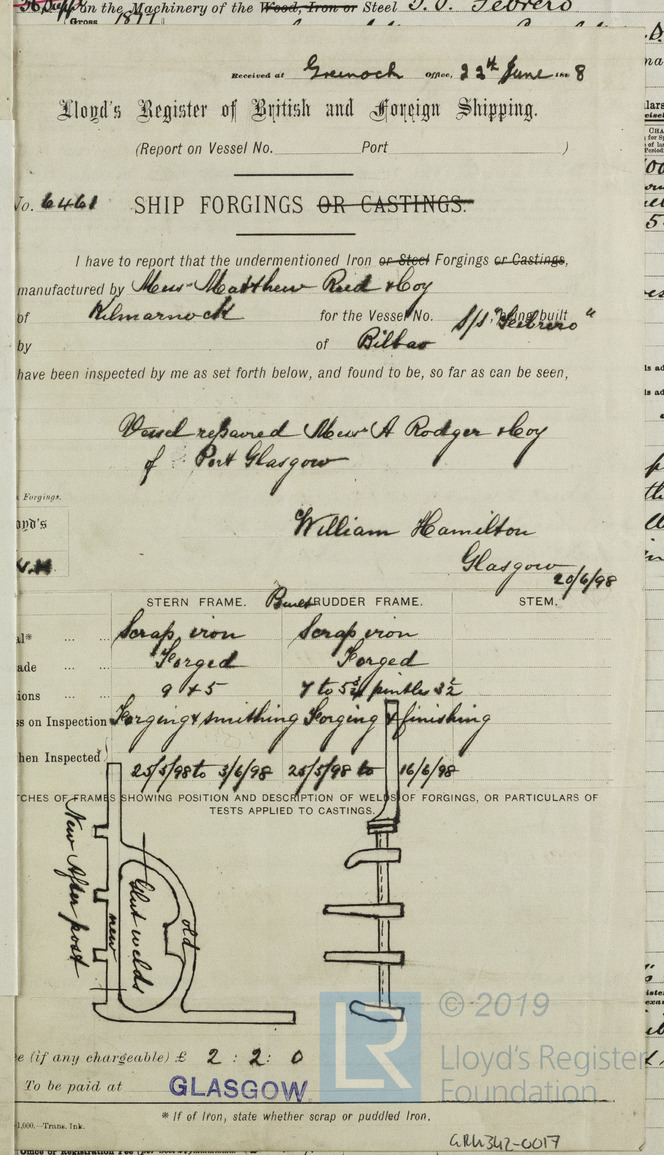 on the Machinery of the Wood, Iron or Steel S.S. Febrero
Gross 1877
Received at Greenock Office, 22nd June 1898
Lloyd's Register of British and Foreign Shipping.
(Report on Vessel No. Port )
No. 6461 SHIP FORGINGS OR CASTINGS.
I have to report that the undermentioned Iron or Steel Forgings or Castings,
manufactured by Messrs Matthew Reid & Coy
of Kilmarnock for the Vessel No. S/S "Febrero" being built
by of Bilbao
have been inspected by me as set forth below, and found to be, so far as can be seen,
Vessel repaired Messrs A Rodger & Coy
of Port Glasgow
Forgings.
oyd's
William Hamilton
Glasgow
20/6/98
STERN FRAME. Built RUDDER FRAME. STEM.
al* ... ... Scrap iron Scrap iron
ade ... ... Forged Forged
ions ... 9 x 5 7 to 5¾ pintles 3½
ss on Inspection Forging & smithing Forging & finishing
hen Inspected 25/5/98 to 3/6/98 25/5/98 to 16/6/98
TCHES OF FRAMES SHOWING POSITION AND DESCRIPTION OF WELDS OF FORGINGS, OR PARTICULARS OF
TESTS APPLIED TO CASTINGS.
New After post
new
Glut welds
old
© 2019
LR
Lloyd's Register
Foundation
e (if any chargeable) £ 2 : 2 : 0
To be paid at GLASGOW
* If of Iron, state whether scrap or puddled Iron.
1,000.—Trans. Ink.
GRK342-0017